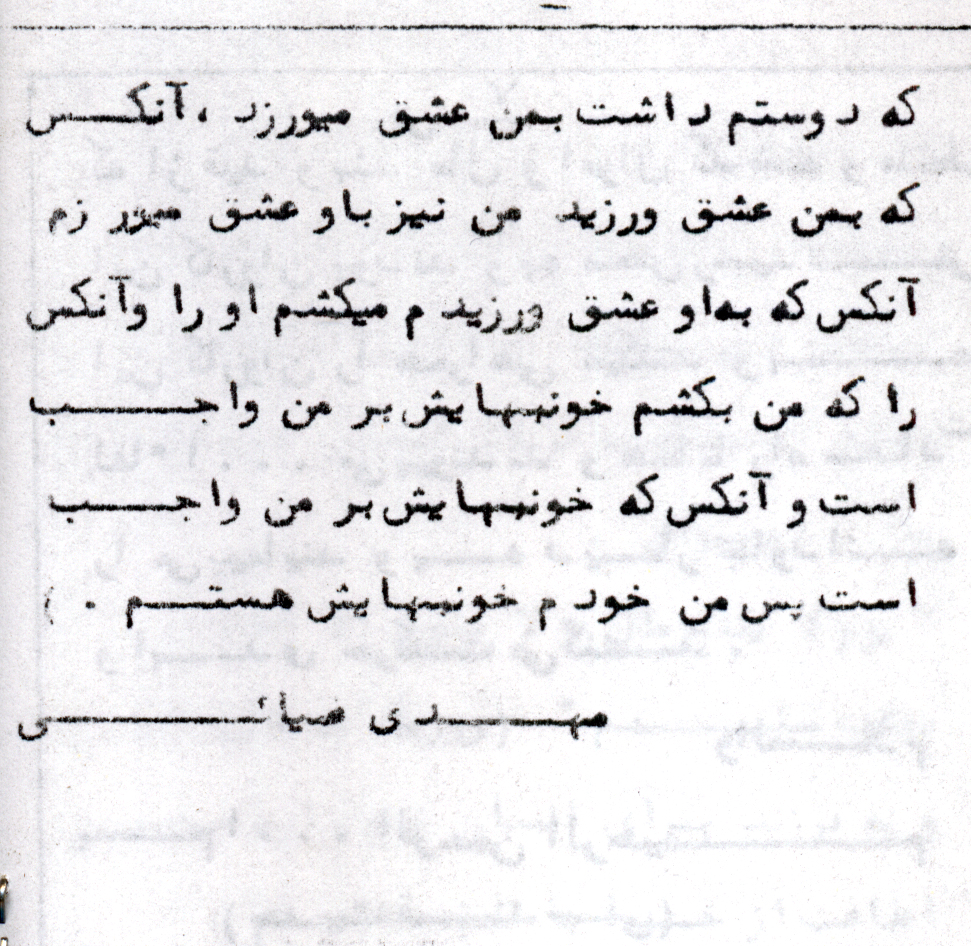 که دوستم داشت بمن عشق میورزد ،آنکس
که بمن عشق ورزید من نیز باو عشق میورزم
آنکس که به او عشق ورزیدم میکشم او را وآنکس
را که من بکشم خونبهایش بر من واجب
است و آنکس که خونبهایش بر من واجب
است پس من خودم خونبهایش هستم . )
مهدی ضیائی